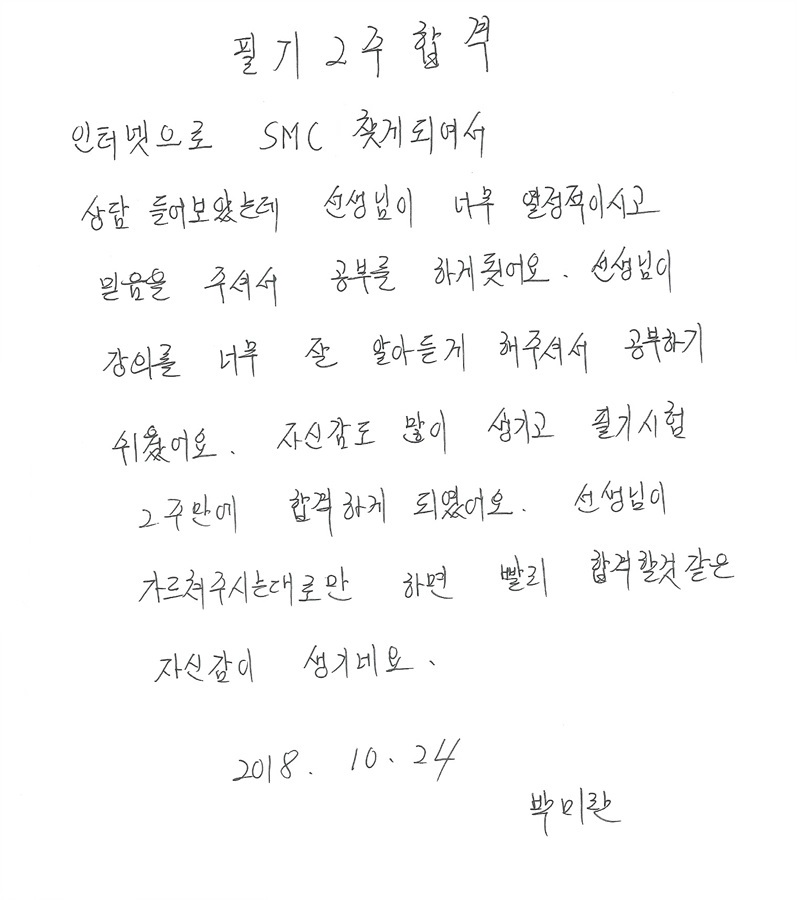 필기 2주 합격
인터넷으로 SMC 찾게되여서
상담 들어보았는데 선생님이 너무 열정적이시고
믿음을 주셔서 공부를 하게됫어요. 선생님이
강의를 너무 잘 알아듣게 해주셔서 공부하기
쉬웠어요. 자신감도 많이 생기고 필기시험
2주만에 합격하게 되였어요. 선생님이
가르쳐주시는대로만 하면 빨리 합격할것같은
자신감이 생기네요.
2018. 10. 24
박미란